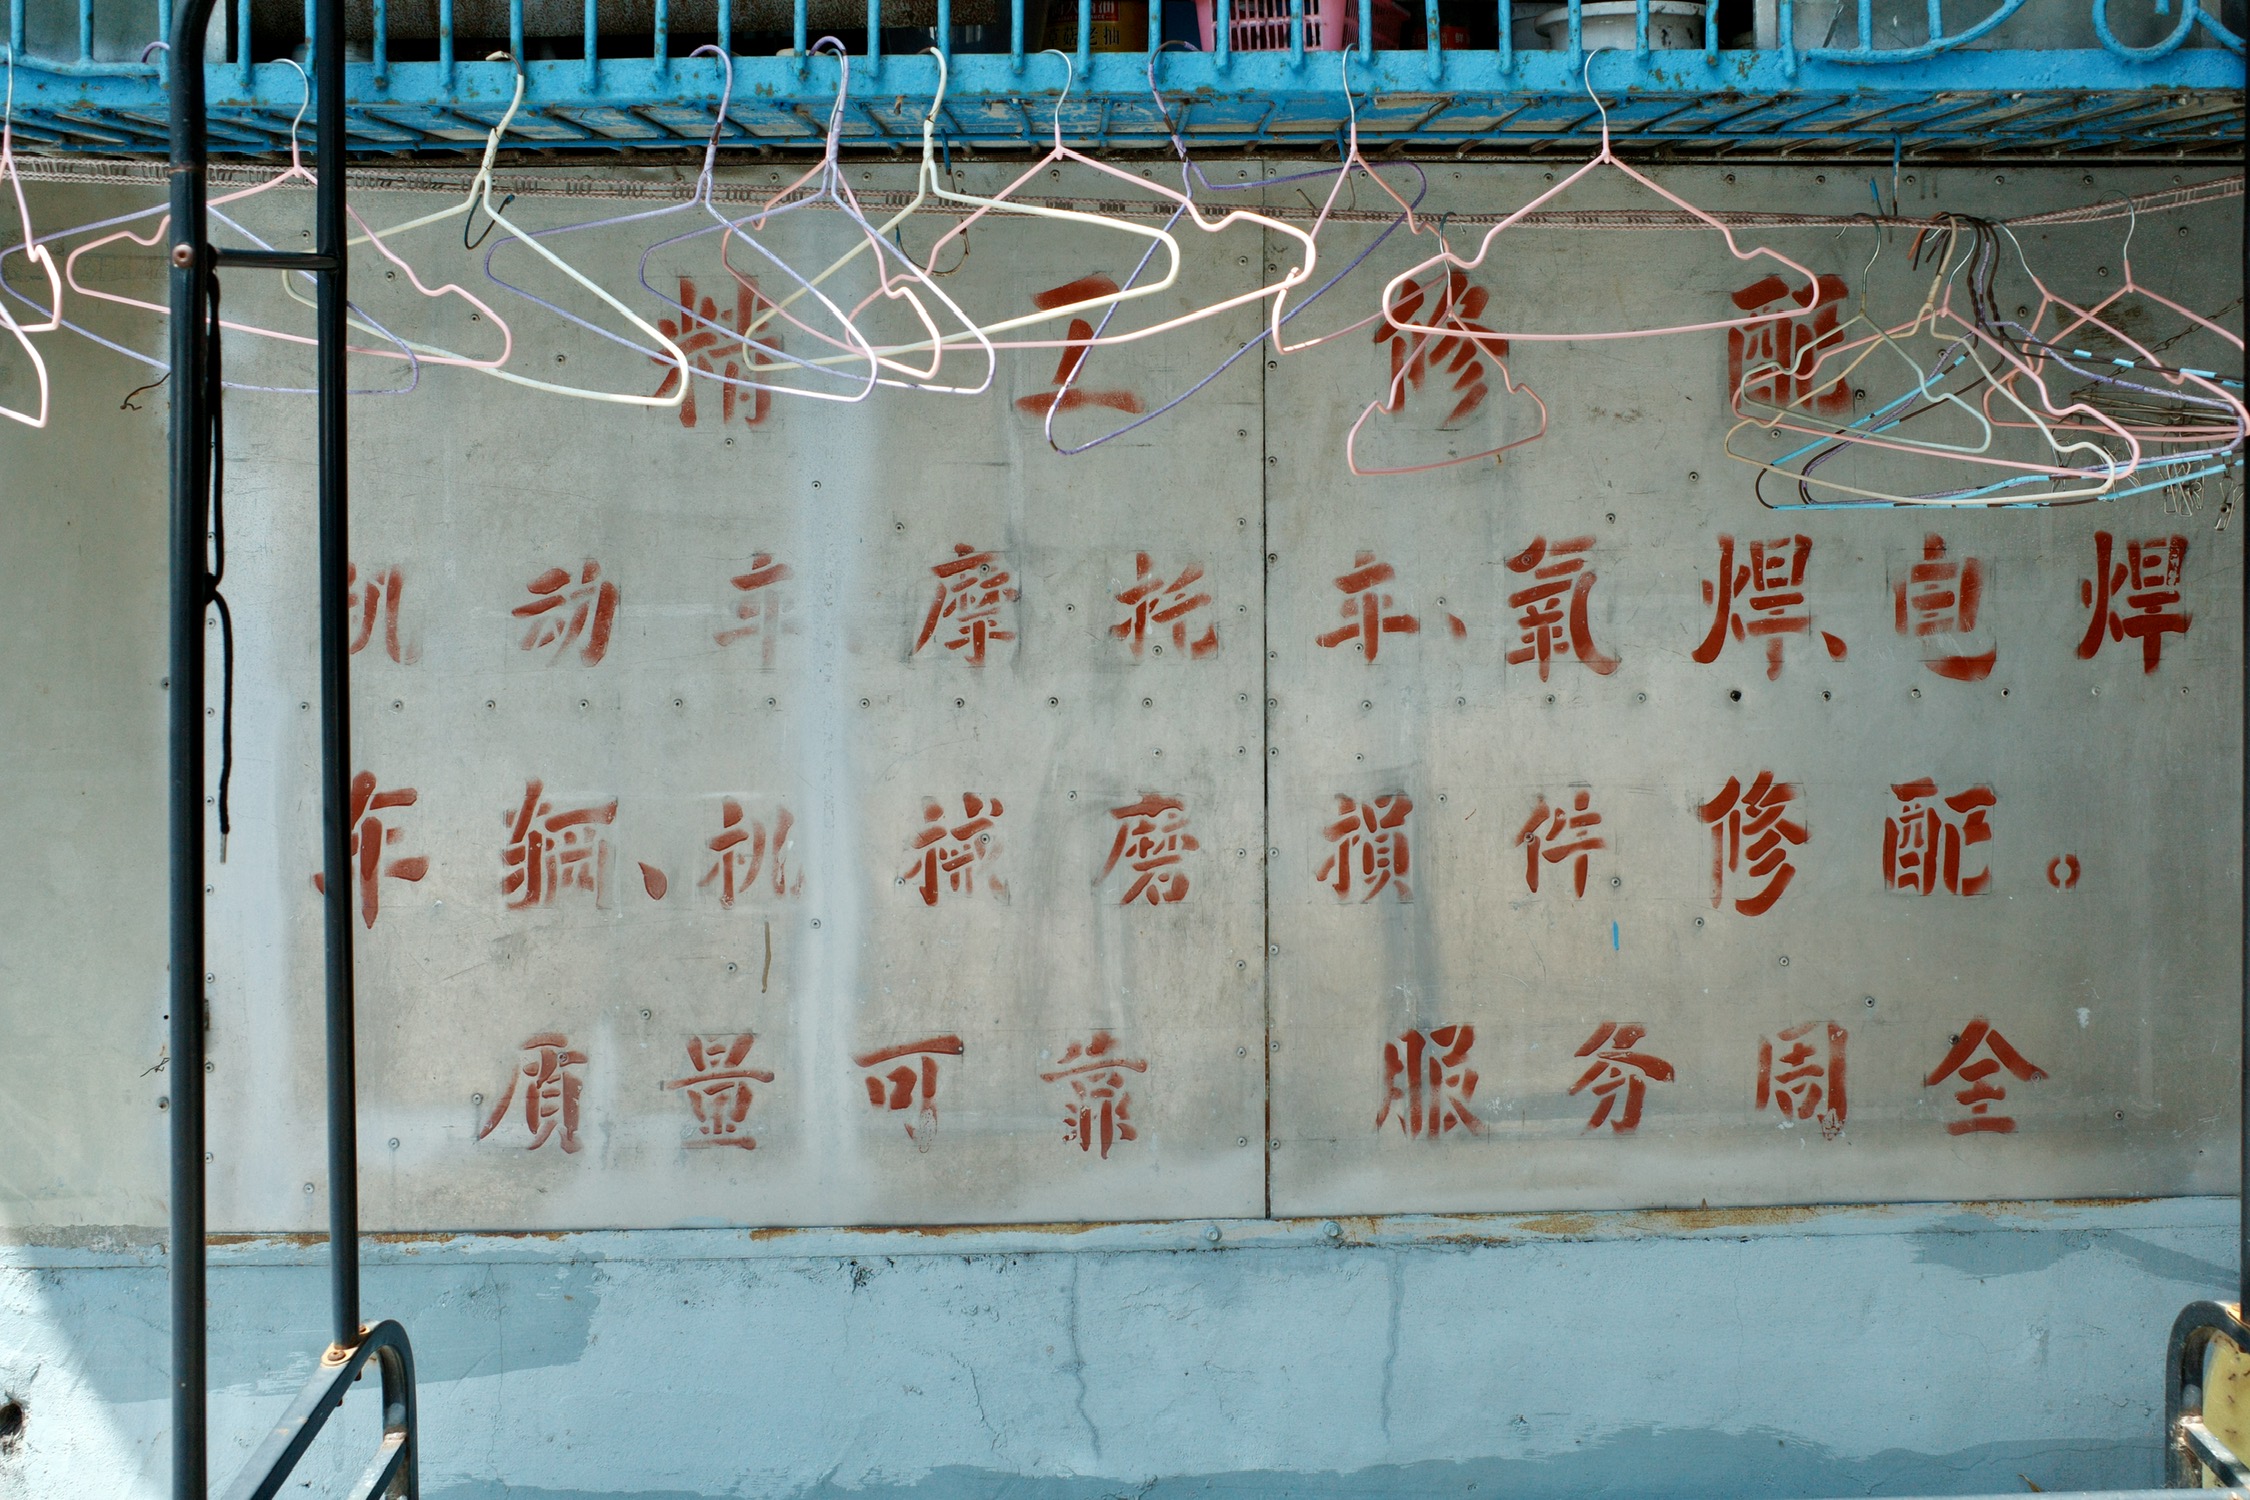 老抽
精工修配
机动车、摩托车、氣焊、电焊
车辆、机械磨損件修配。
质量可靠 服务周全